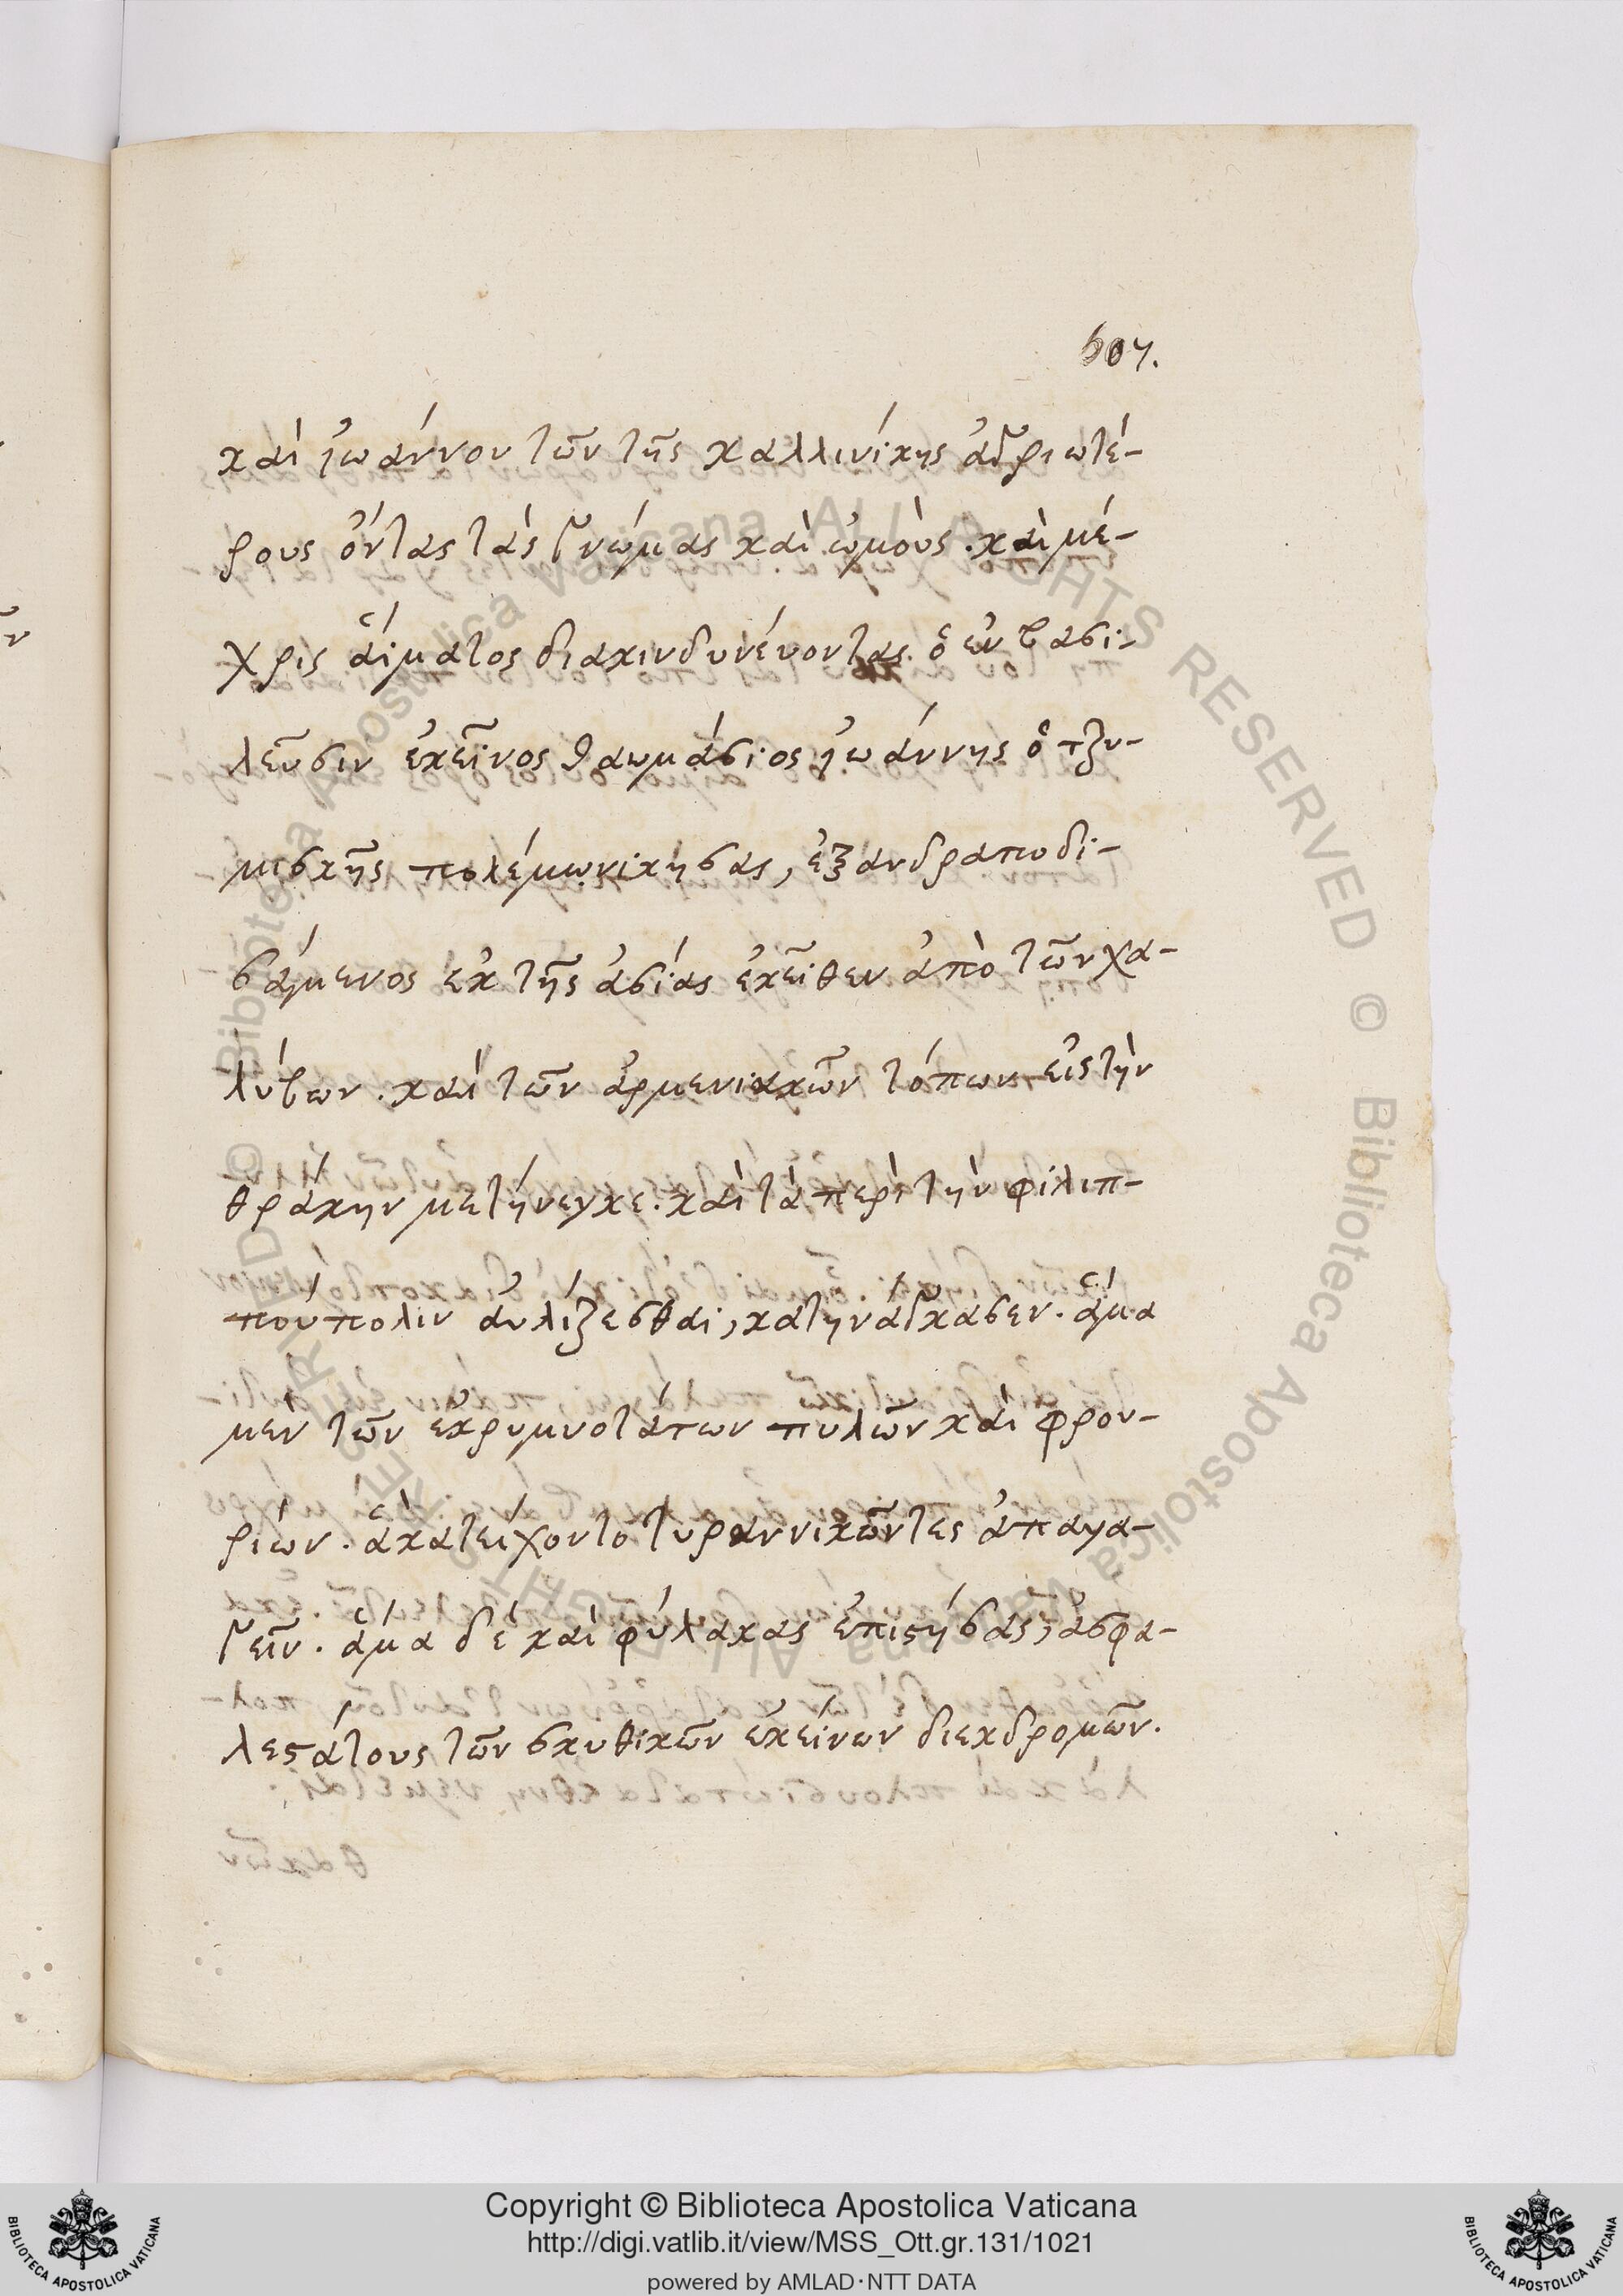 507.
καὶ ἰωάννου τῶν τῆς καλλινίκης ἀγριωτέ-
ρους ὄντας τὰς γνώμας καὶ ὠμοὺς. καὶ μέ-
χρις αἵματος διακινδυνέυοντας. ὁ ἐν βασι-
λεῦσιν ἐκεῖνος θαυμάσιος ἰωάννης ὁ τζι-
μισκῆς πολέμω νικήσας, ἐξανδραποδι-
σάμενος ἐκ τῆς ἀσίας ἐκεῖθεν ἀπὸ τῶν χα-
λύβων. καὶ τῶν ἀρμενιακῶν τόπων εἰς τὴν
θράκην μετήνεγκε. καὶ τὰ περὶ τὴν φίλιπ-
πούπολιν ἀυλίζεσθαι, κατηνάγκασεν. ἅμα
μὲν τῶν ἐκρυμνοτάτων πυλῶν καὶ φρου-
ρίων. ἃ κατείχοντο τυραννικῶντες ἀπαγα-
γεῖν. ἅμα δὲ καὶ φύλακας ἐπιστήσας, ἀσφα-
λεστάτους τῶν σκυθικῶν ἐκείνων διεκδρομῶν.
Copyright © Biblioteca Apostolica Vaticana
http://digi.vatlib.it/view/MSS_Ott.gr.131/1021
powered by AMLAD·NTT DATA
BIBLIOTECA APOSTOLICA VATICANA
BIBLIOTECA APOSTOLICA VATICANA